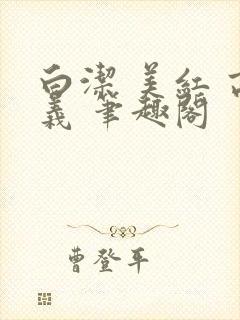 白潔 美紅 高
義 筆趣閣
曹登平